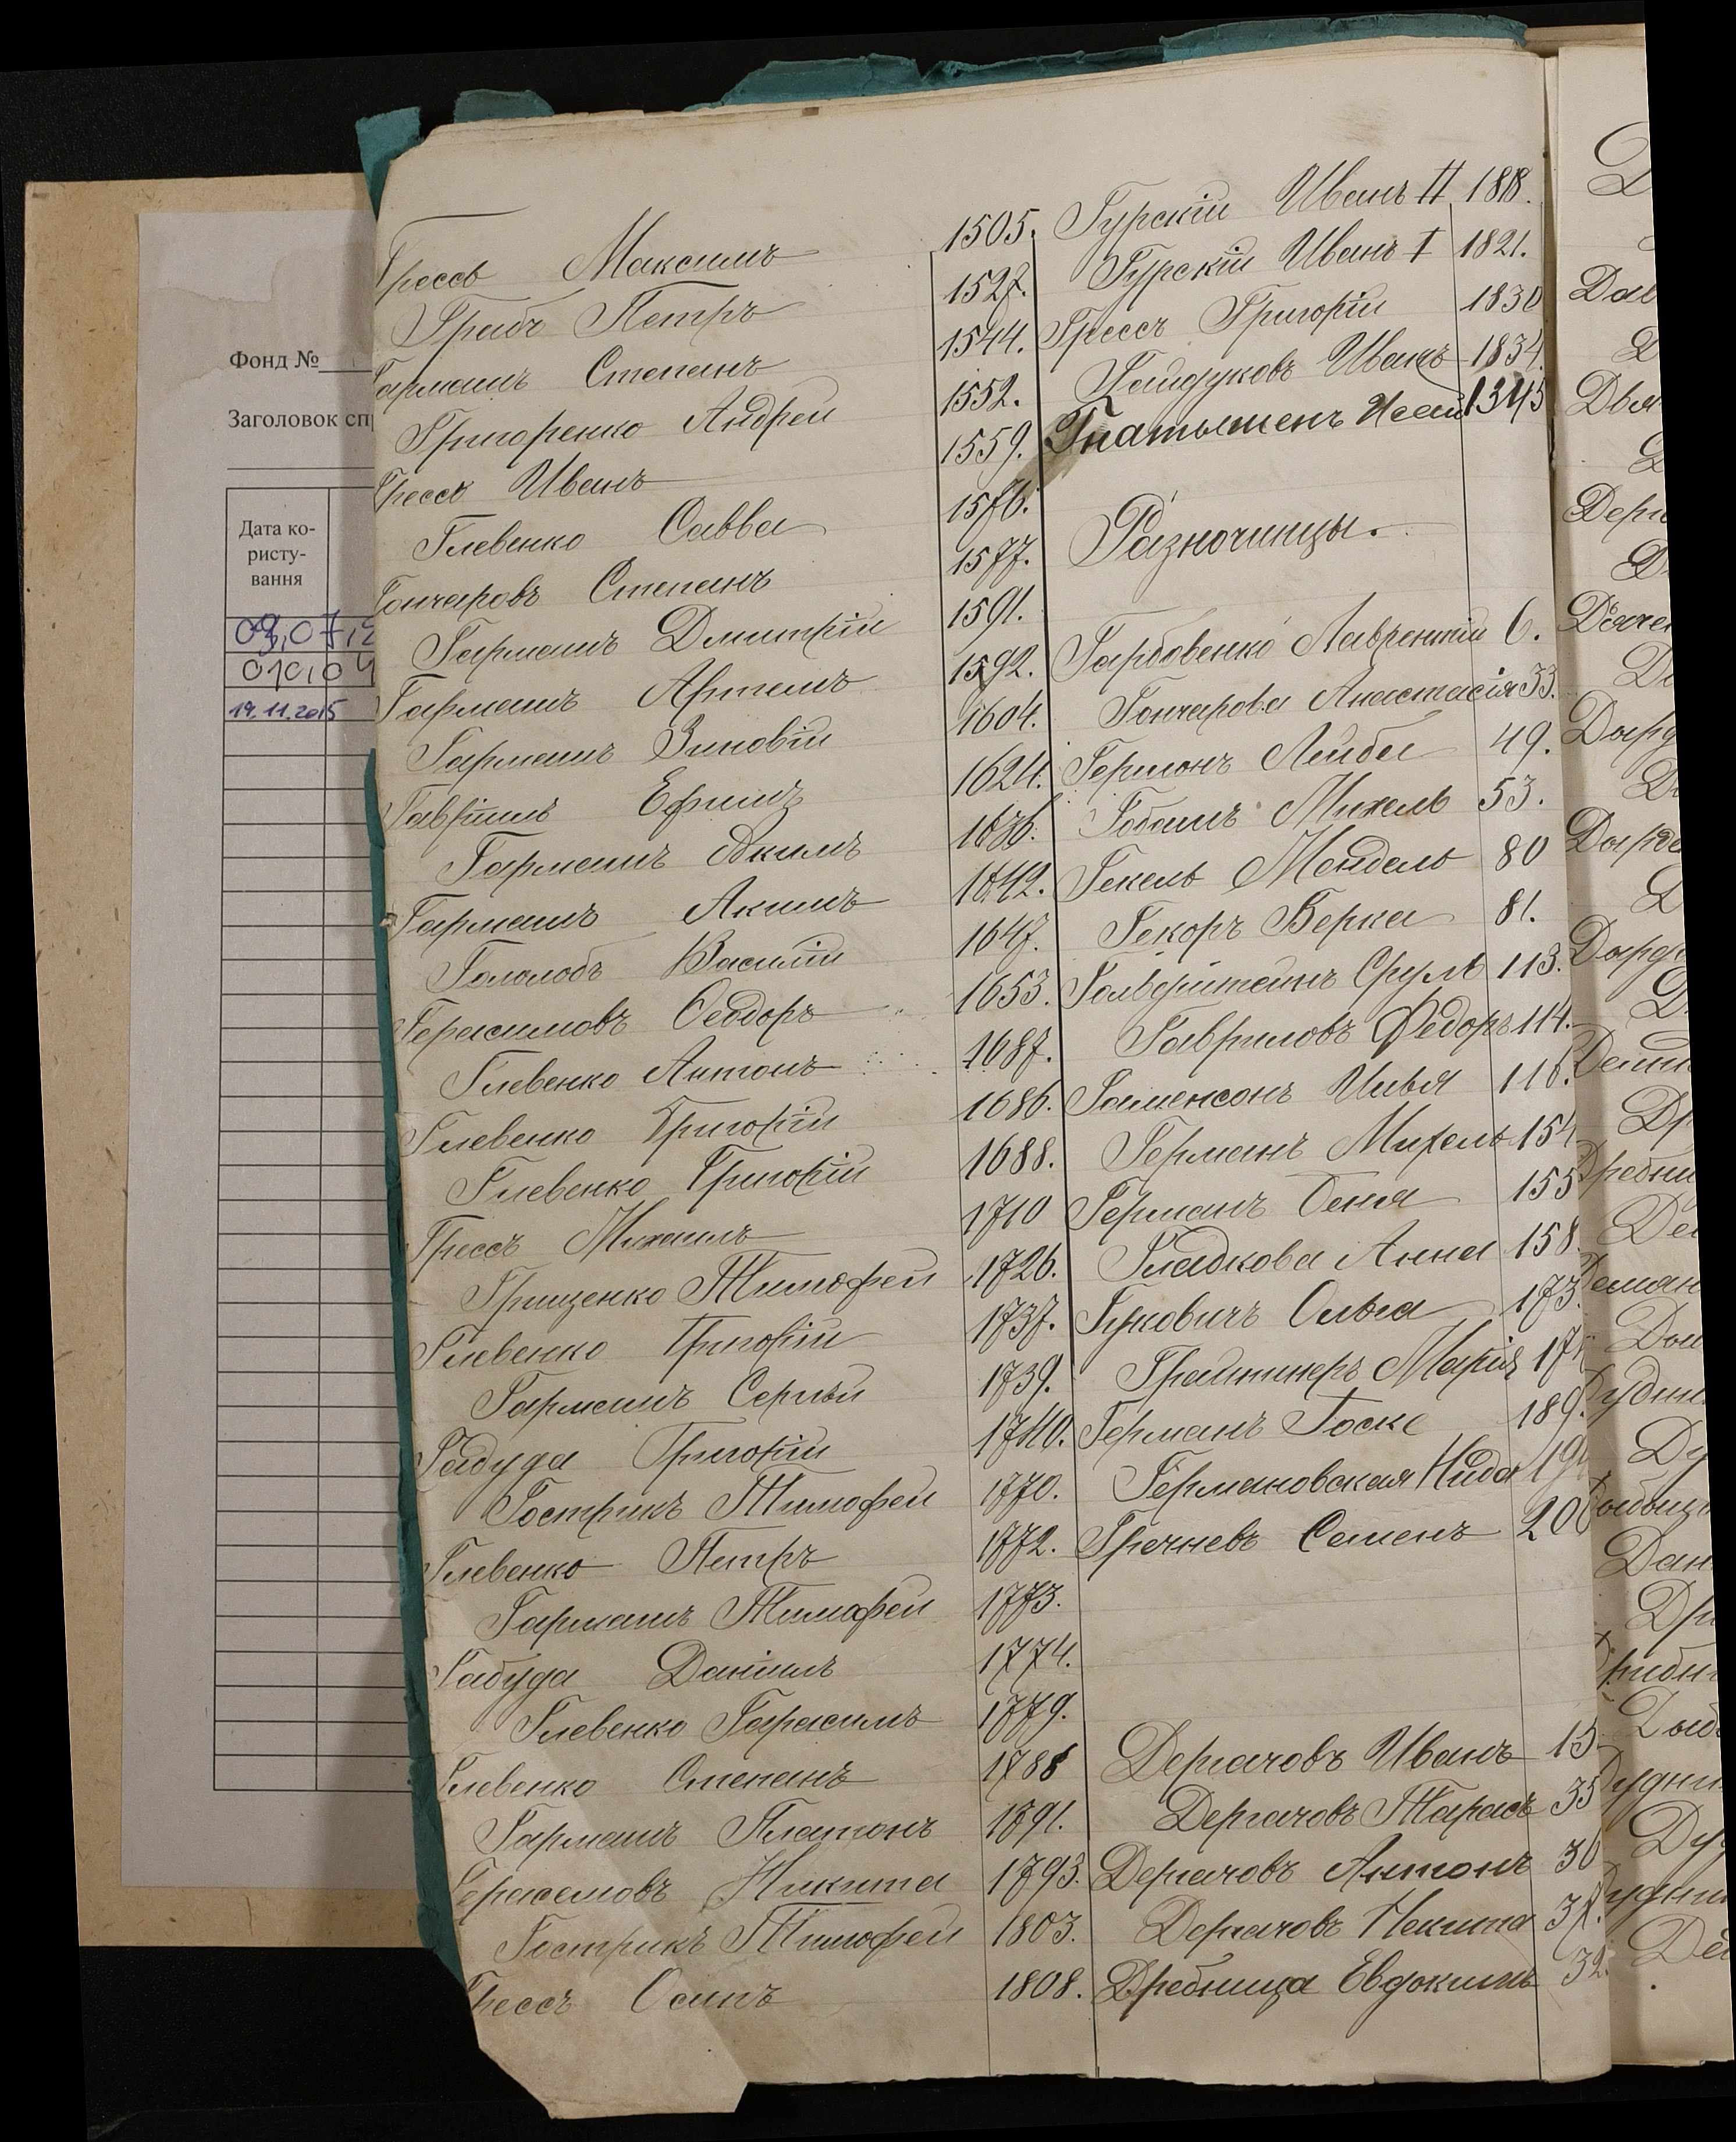 Фонд №
Заголовок сп
Дата ко-
ристу-
вання
19.11.2015
Грессъ Максимъ 1505.
Грабъ Петръ 1527.
Гармашъ Степанъ 1544.
Григоренко Андрей 1552.
Грессъ Иванъ 1559.
Глевенко Савва 1576.
Гончаровъ Степанъ 1577.
Гармашъ Дмитрій 1591.
Гармашъ Артемъ 1592.
Гармашъ Зиновій 1604.
Гавріилъ Ефимъ 1624.
Гармашъ Акимъ 1636.
Гармашъ Акимъ 1642.
Гололобъ Василій 1647.
Герасимовъ Ѳеодоръ 1653.
Глевенко Антонъ 1687.
Глевенко Григорій 1686.
Глевенко Григорій 1688.
Грессъ Михаилъ 1710
Грищенко Тимофей 1726.
Глевенко Григорій 1737.
Гармашъ Сергѣй 1739.
Габуда Григорій 1740.
Гострикъ Тимофей 1770.
Глевенко Петръ 1772.
Гармашъ Тимофей 1773.
Габуда Даніилъ 1774.
Глевенко Гарасимъ 1779.
Глевенко Степанъ 1788
Гармашъ Платонъ 1791.
Герасемовъ Никита 1793.
Гострикъ Тимофей 1803.
Грессъ Осипъ 1808.
Гурскій Иванъ II 1818.
Гурскій Иванъ I 1821.
Грессъ Григорій 1830
Гайдуковъ Иванъ 1834.
Гнатышенъ Исай 1345
Разночинцы.
Гарбовенко Лаврентій 6.
Гончарова Анастасія 33.
Гермонъ Лейба 49.
Гобашъ Михель 53.
Гекель Мендель 80
Гекоръ Берка 81.
Гольдштейнъ Сруль 113.
Гавриловъ Федоръ 114.
Гаменсонъ Илья 116.
Германъ Михель 154
Германъ Беня 155
Гладкова Анна 158.
Гуковичъ Ольга 173.
Грайтнеръ Марія 17
Германъ Госке 189.
Германовская Нида 19
Гречневъ Семенъ 20
Дергачовъ Иванъ 15
Дергачовъ Тарасъ 35
Дергачовъ Антонъ 30
Дергачовъ Некита 37.
Дребница Евдокимъ 32